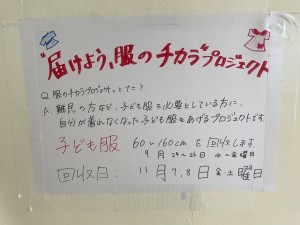 "届けよう,服のチカラ"プロジェクト
Q.服のチカラプロジェクトってナニ?
A.難民の方など,子ども服を必要としている方に,
自分が着れなくなった子ども服をあげるプロジェクトです。
子ども服 60〜160cmを回収します
9月 日 水〜金曜日
回収日: 11月7,8日 金・土曜日